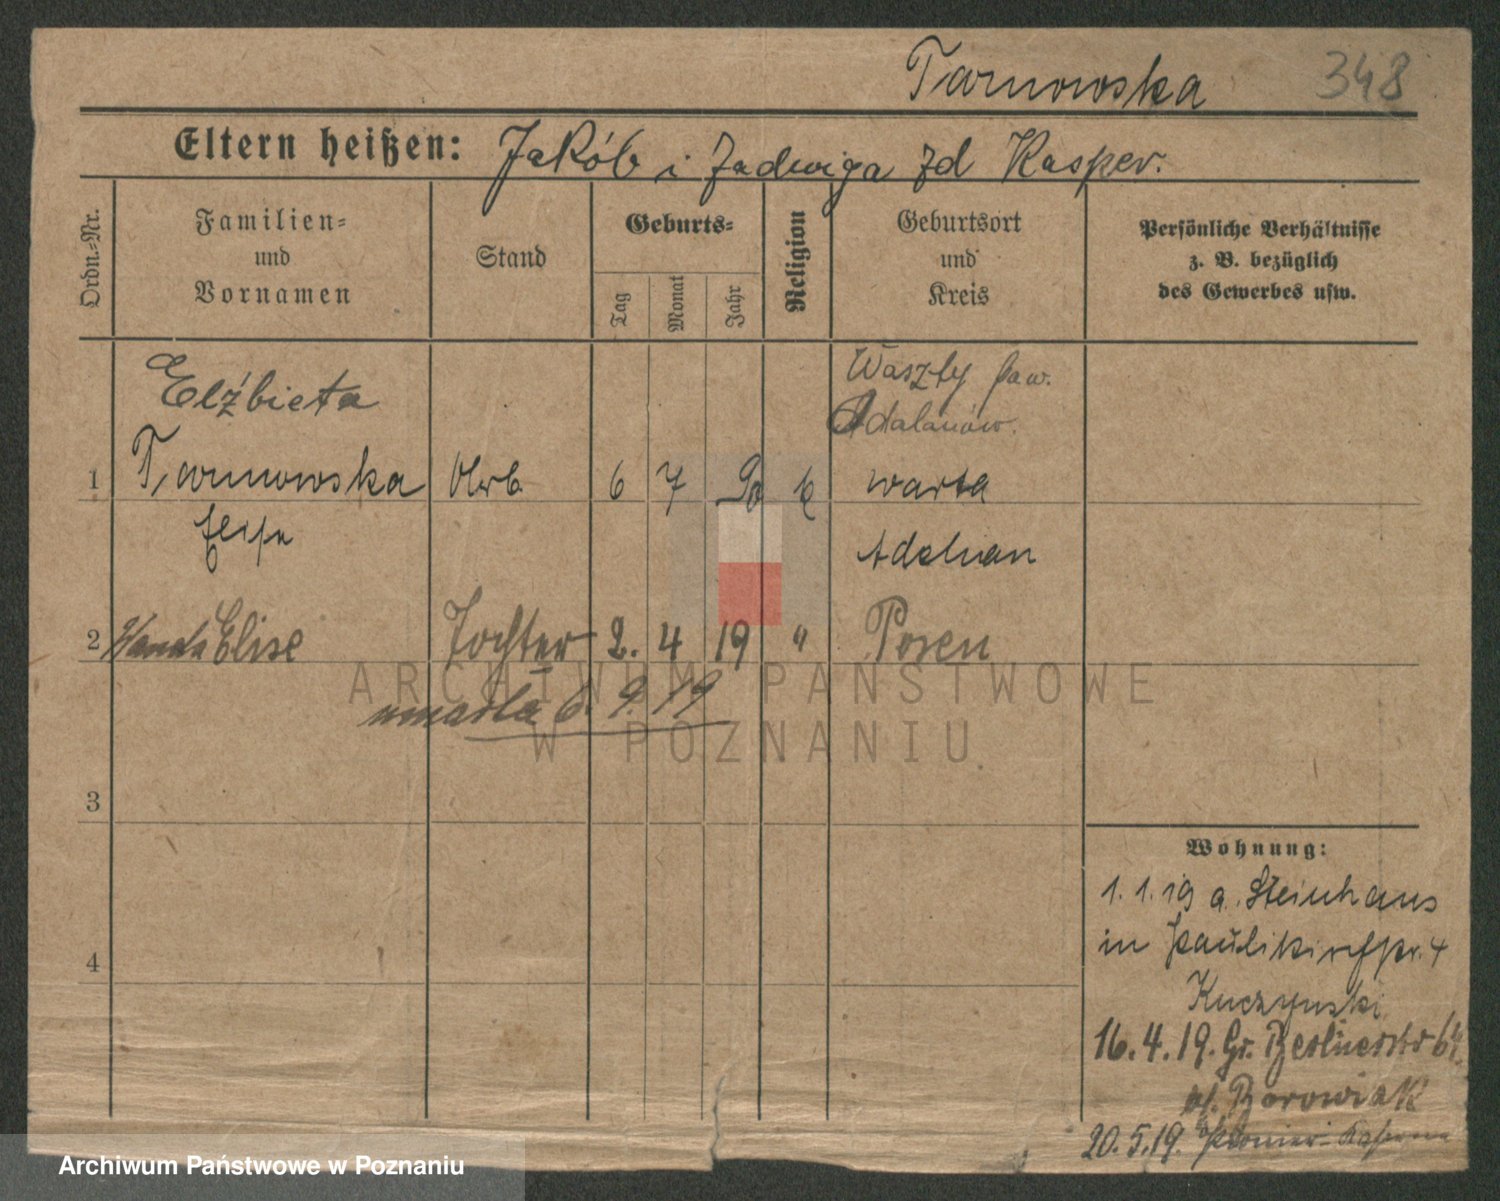 Tarnowska 348
Eltern heißen: Jakób i Jadwiga zd Kasper.
Ordn.-Nr.
Familien-
und
Vornamen
Stand
Geburts-
Tag
Monat
Jahr
Religion
Geburtsort
und
Kreis
Persönliche Verhältnisse
z. B. bezüglich
des Gewerbes usw.
Elżbieta
Waszty paw.
Adalanów.
1 Tarnowska 6 7 90 k warta
Adelnau
2 Wanda Elise Tochter 2. 4 19 " Posen
umarła 6. 9. 19
3
4
Wohnung:
1. 1. 19 a. Steinhaus
in Paulikirchstr. 4
Kuczynski
16. 4. 19. Gr. Berlinerstr 64.
bf. Borowiak
20. 5. 19. Pionier-Kaserne
ARCHIWUM PAŃSTWOWE
W POZNANIU
Archiwum Państwowe w Poznaniu